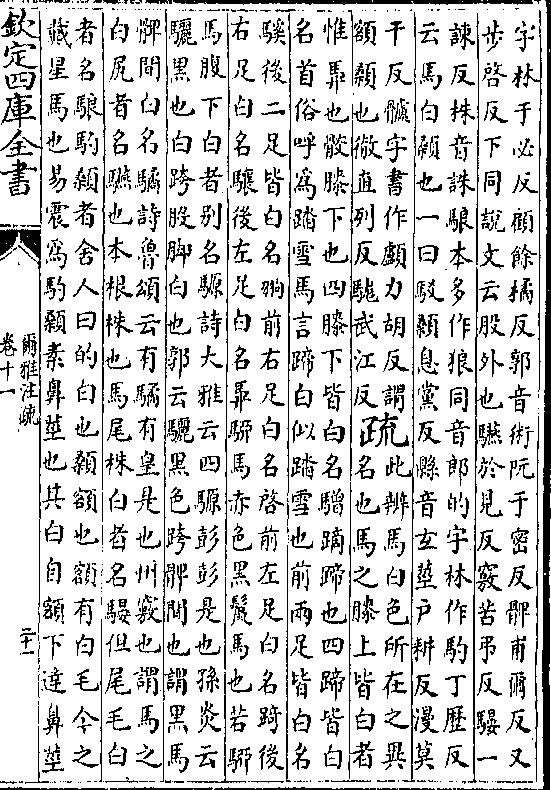 字林于必反顧餘橘反郭音術阮于密反髀甫爾反又
步啓反下同說文云股外也驠於見反竅苦弔反騴一
諫反株音誅駺本多作狼同音郎的字林作馰丁歷反
云馬白額也一曰駁顙息黨反縣音玄莖戶耕反漫莫
干反髗字書作顱力胡反謂
額顙也徹直列反駹武江反
疏
此辨馬白色所在之異
名也馬之膝上皆白者
惟馵也骹膝下也四膝下皆白名驓蹢蹄也四蹄皆白
名首俗呼為踏雪馬言蹄白似踏雪也前兩足皆白名
騱後二足皆白名翑前右足白名啓前左足白名踦後
右足白名驤後左足白名馵駵馬赤色黑鬛馬也若駵
馬腹下白者别名騵詩大雅云四騵彭彭是也孫炎云
驪黑也白跨股脚白也郭云驪黑色跨髀間也謂黑馬
髀間白名驈詩魯頌云有驈有皇是也州竅也謂馬之
白尻者名驠也本根株也馬尾株白者名騴但尾毛白
者名駺馰顙者舍人曰的白也顙額也額有白毛今之
戴星馬也易震為馰顙素鼻莖也其白自額下達鼻莖
欽定四庫全書
爾雅注疏
卷十一
二十一